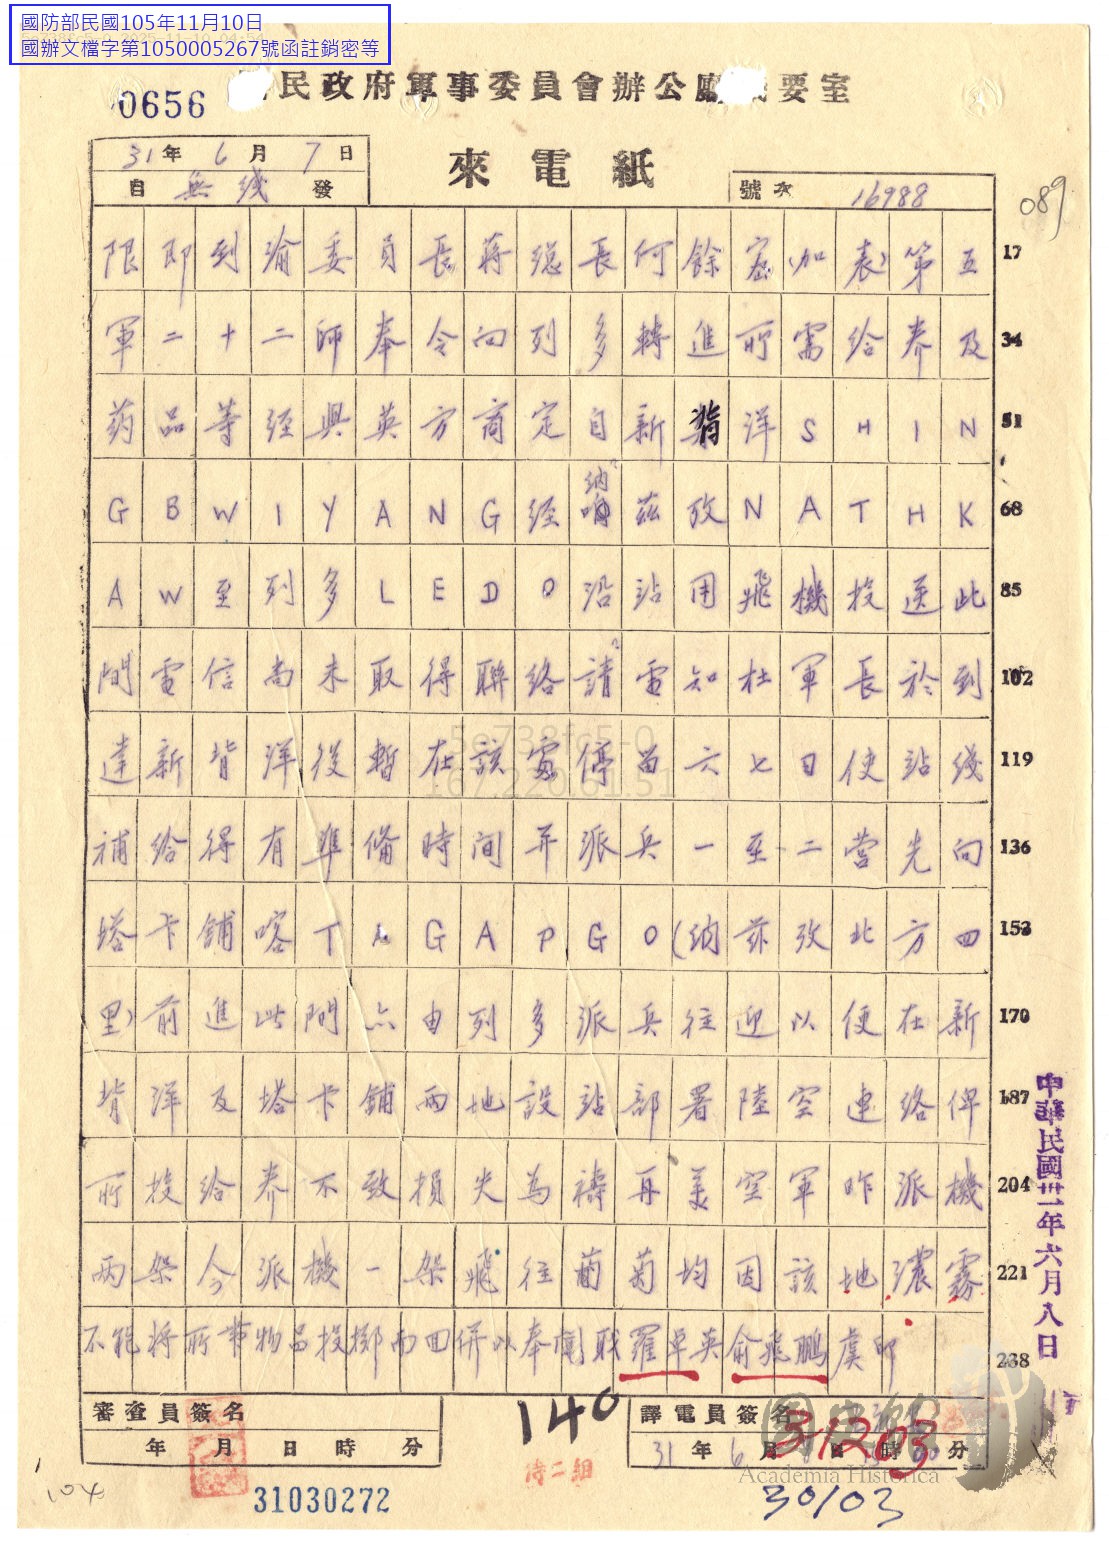 國防部民國105年11月10日
國辦文檔字第1050005267號函註銷密等
0656
民政府軍事委員會辦公廳 要室
31年6月7日
自 無线 發
來電紙
號次 16988
089
限即到渝委員長蔣總長何餘密(加表)第五 17
軍二十二師奉令向列多轉進所需給养及 34
药品等经與英方商定自新背洋SHIN 51
GBWIYANG经纳兹孜NATHK 68
AW至列多LEDO沿站用飛機投送此 85
間電信尚未取得聯络請電知杜軍長於到 102
達新背洋後暫在該處停留六七日使站线 119
補给得有準備時间并派兵一至二营先向 136
塔卡鋪喀TAGAPGO(纳兹孜北方四 153
里)前進此間亦由列多派兵往迎以便在新 170
背洋及塔卡鋪两地設站部署陸空連络俾 187
所投给养不致損失為禱再美空軍昨派機 204
两架今派機一架飛往葡萄均因該地濃霧 221
不能将所带物品投擲而回併以奉聞职羅卓英俞飛鵬虞印 238
中華民國卅一年六月八日
審查員簽名
年 月 日 時 分
140
待二組
譯電員簽名
31年6月 日 時 分
31203
30103
104
31030272
5e738fc5-0
167.220.61.51
國史館
Academia Historica